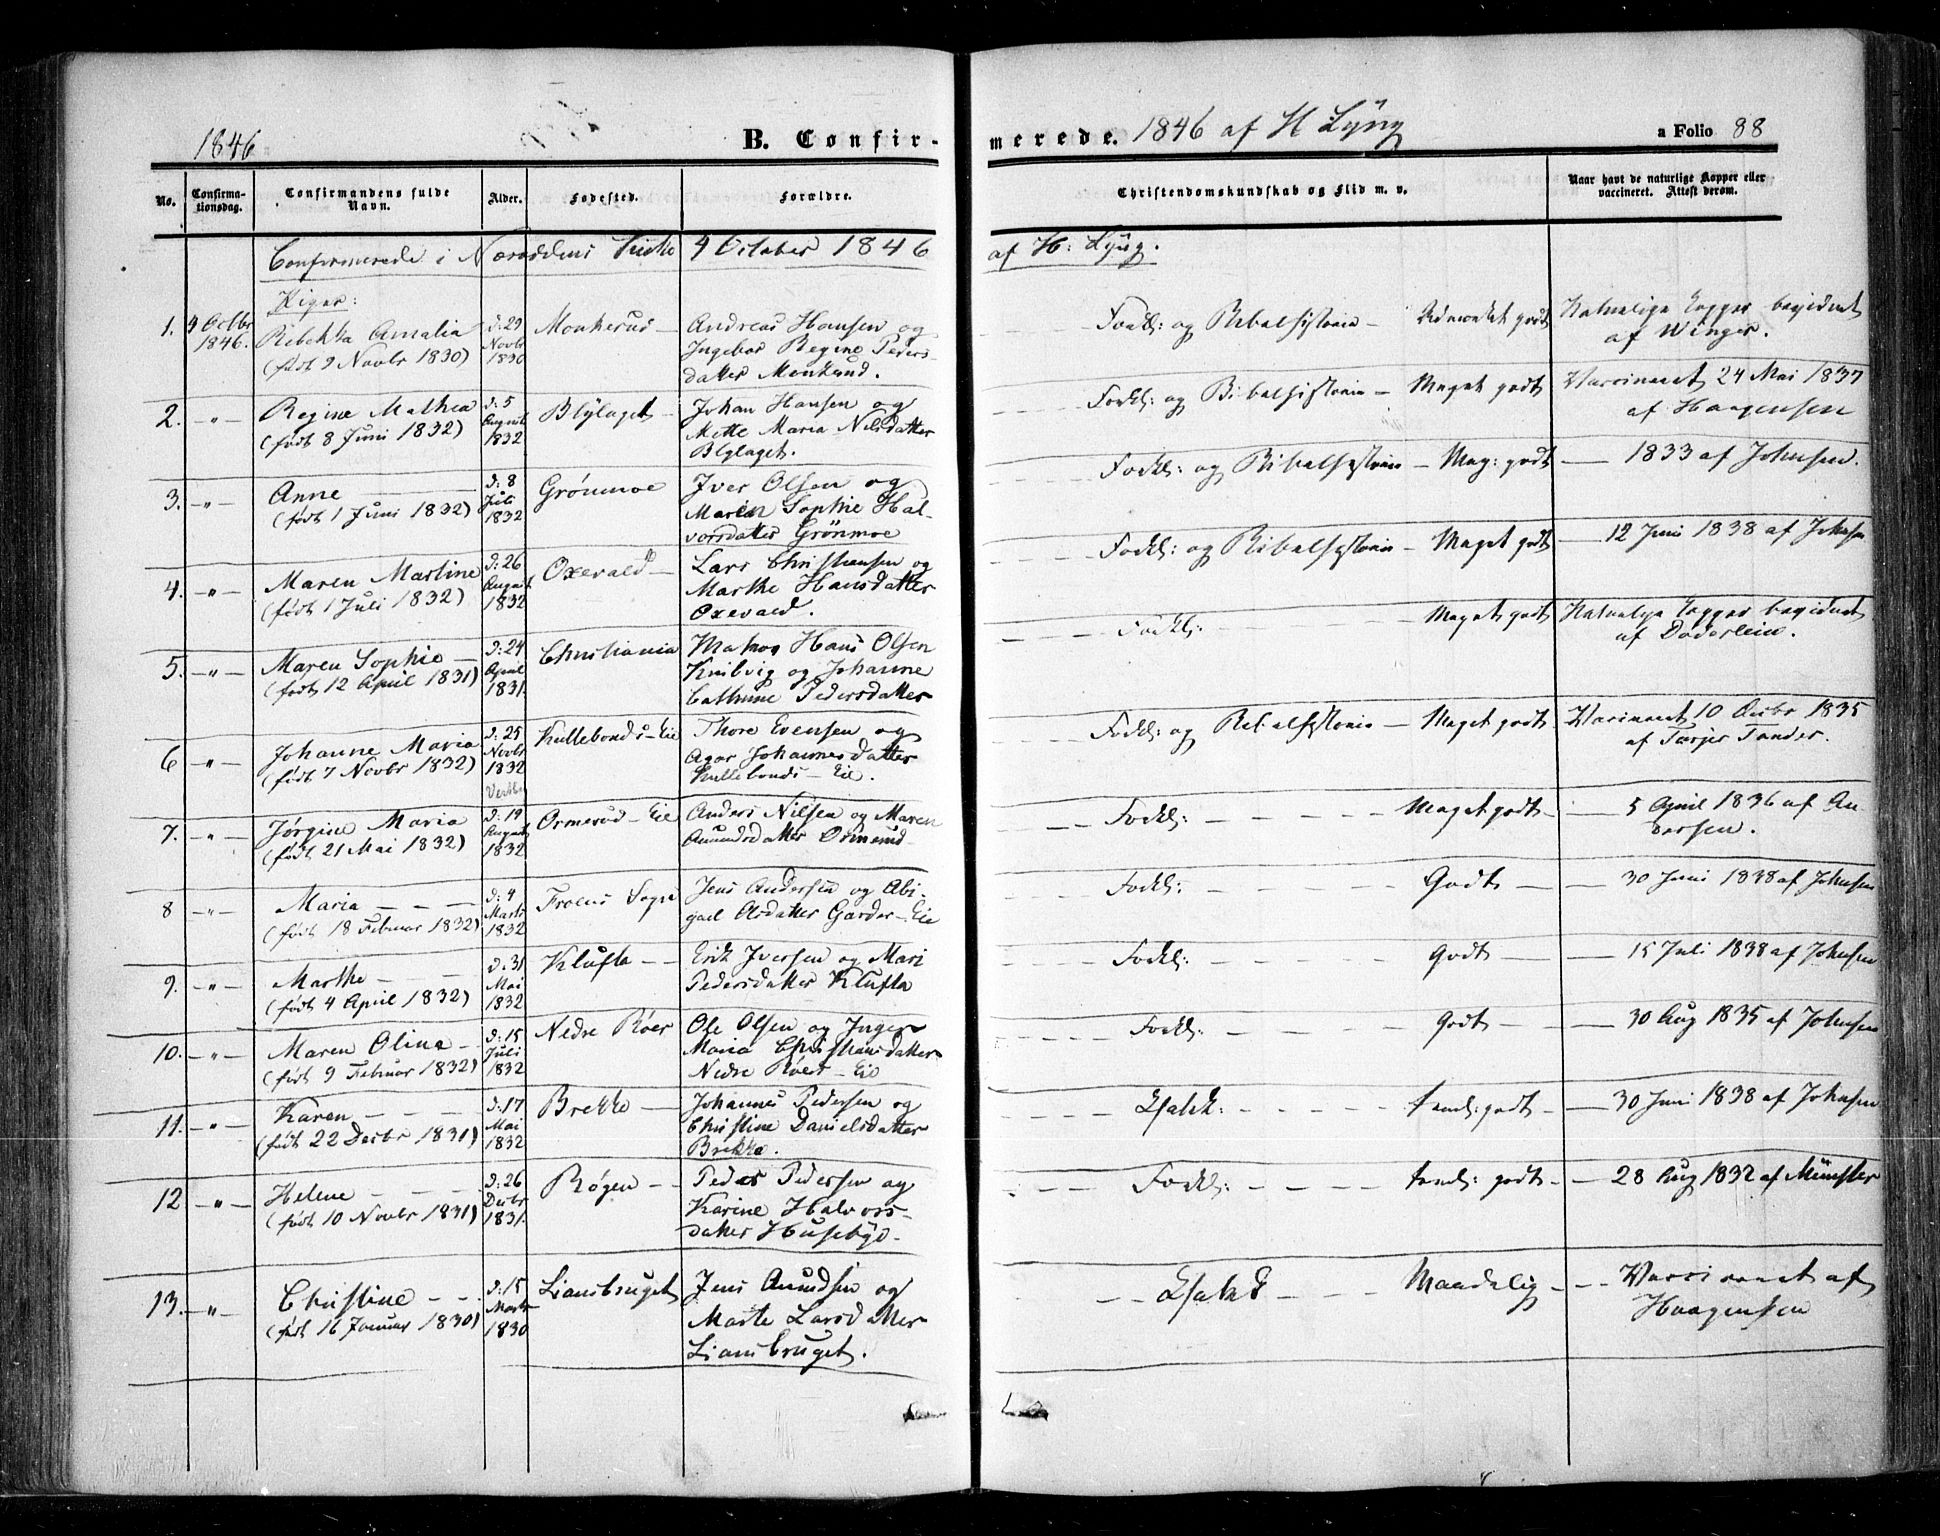 1846
B. Confir-
merede. 1846 af H Lyng
a Folio 88
No.
Confirma-
tionsdag.
Confirmandens fulde
Navn.
Alder.
Fødested.
Forældre.
Christendomskundskab og Flid m. v.
Naar havt de naturlige Kopper eller
vaccineret. Attest derom.
Confirmerede i Næsoddens Kirke 4 October 1846
af H: Lyng.
Piger:
1. 4 Octbr 1846. Rebekka Amalia (født 9 Novbr 1830) D: 29 Novbr 1830 Monkerud – Andreas Hansen og Ingebor Regine Peders datter Monkerud. Forkl: og Bibelhistorie – Udmærket godt Naturlige Kopper af Winger.
2. – " – Regine Mathea (født 8 Juni 1832) D: 5 August 1832 Blylaget – Johan Hansen og Mette Maria Nilsdatter Blylaget. Forkl: og Bibelhistorie – Meget godt Vaccineret 24 Mai 1837 af Haagensen
3. – " – Anne (født 1 Juni 1832) D: 8 Juli 1832 Grønmoe Iver Olsen og Maren Sophie Hal- vorsdatter Grønmoe Forkl: og Bibelhistorie – Meg: godt – 1833 af Johnsen.
4. – " – Maren Martine (født 1 Juli 1832) D: 26 August 1832 Oxevald – Lars Christiansen og Marthe Hansdatter Oxevald. Forkl: og Bibelhistorie – Meget godt – 12 Juni 1838 af Johnsen
5. – " – Maren Sophie – (født 12 April 1831) D: 24 April 1831. Christiania Hans Olsen og Johanne Cathrine Pedersdatter Forkl: Meget godt Naturlige Kopper af Døderlein.
6 – " – Johanne Maria (født 7 Novbr 1832) D: 25 Novbr 1832 Kullebonds – Eie Thore Evensen og Johannesdatter Kullebonds – Eie. Forkl: og Bibelhistorie – Meget godt Vaccineret 10 1835 af Tander.
7. – " – Jørgine Maria (født 21 Mai 1832) D: 19 August 1832 Ormerud – Eie Anders Nilsen og Maren Amundsdatter Ormerud – Forkl: Meget godt – 5 April 1836 af An- dersen.
8 – " – Maria – – – (født 18 Februar 1832) D: 4 Marts 1832 Froens Sogn Jens Andersen og Abi- gael Olsdatter Garder – Eie Forkl: Godt – 30 Juni 1838 af Johnsen
9. – " – Marthe – (født 4 April 1832) D: 31 Mai 1832 Klufta – Erik Iversen og Mari Pedersdatter Klufta Forkl: Godt – 15 Juli 1838 af Johnsen
10. – " – Maren Olina – (født 9 Februar 1832) D: 15 Juli 1832 Nedre Røer Ole Olsen og Inger Maria Christiansdatter Nedre Røer – Eie Forkl: Godt – 30 Aug 1835 af Johnsen
11. – " – Karen – – – (født 22 Decbr 1831) D: 17 Mai 1832 Brekke – Johannes Pedersen og Christine Danielsdatter Brekke. temel: godt – 30 Juni 1838 af Johnsen
12 – " – Helene – – – (født 10 Novbr 1831) D: 26 Decbr 1831. Røgen – Peder Pedersen og Karine Halvors- datter Husebye – Forkl: temel: godt – 28 Aug 1832 af Münster
13. – " – Christine – – (født 16 Januar 1830) D: 15 Marts 1830 Liansbruget Jens Amundsen og Marte Larsdatter Liansbruget. Maadelig – Vaccineret af Haagensen